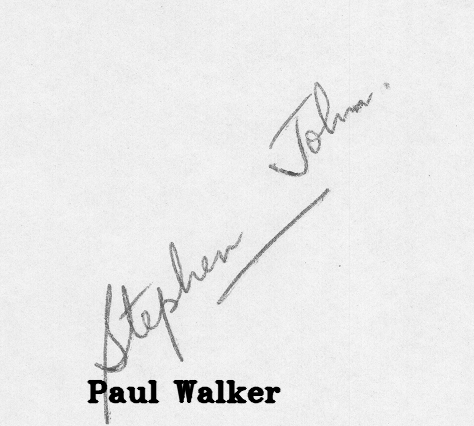 Stephen John.
Paul Walker